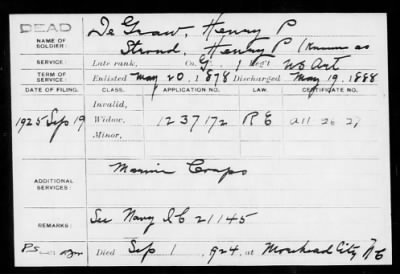 DEAD
De Graw, Henry P
NAME OF SOLDIER:
Strond, Henry P (Known as
SERVICE: Late rank, Co. G, 1 Reg't US Art
TERM OF SERVICE: Enlisted May 20, 1878 Discharged May 19, 1888
DATE OF FILING. CLASS. APPLICATION NO. LAW. CERTIFICATE NO.
Invalid,
1925 Sep 19 Widow, 1237172
Minor,
ADDITIONAL SERVICES: Marine Corps
REMARKS: See Navy 21145
Died Sep 1, 924, at Morehead City NC